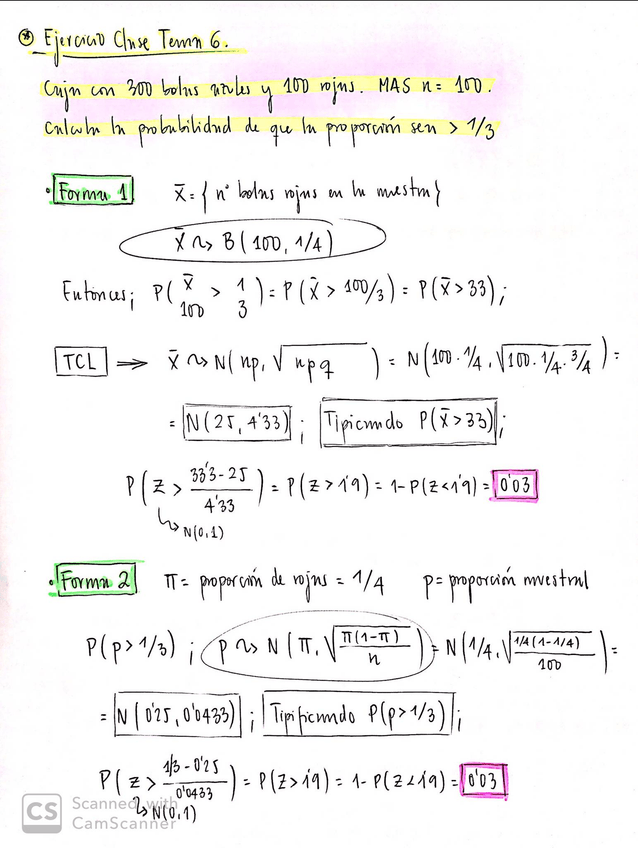 * Ejercicio Clase Tema 6.
Caja con 300 bolas azules y 100 rojas. MAS n = 100.
Calcula la probabilidad de que la proporción sea > 1/3
· Forma 1 x̄ = { nº bolas rojas en la muestra}
x̄ ~> B(100, 1/4)
Entonces; P( x̄/100 > 1/3 ) = P( x̄ > 100/3) = P( x̄ > 33);
TCL => x̄ ~> N(np, √npq ) = N(100 · 1/4, √100 · 1/4 · 3/4 ) =
= N(25, 4'33) ; Tipicando P(x̄>33);
P( Z > 33'3-25/4'33 ) = P(Z > 1'9) = 1-P(Z<1'9) = 0'03
↳ N(0,1)
· Forma 2 π = proporción de rojas = 1/4 p = proporción muestral
P(p > 1/3) ; p ~> N( π, √π(1-π)/n ) = N(1/4, √1/4(1-1/4)/100 ) =
= N(0'25, 0'0433) ; Tipificando P(p > 1/3);
P( Z > 1/3 - 0'25/0'0433 ) = P(Z>1'9) = 1-P(Z<1'9) = 0'03
↳ N(0,1)
CS Scanned with
CamScanner